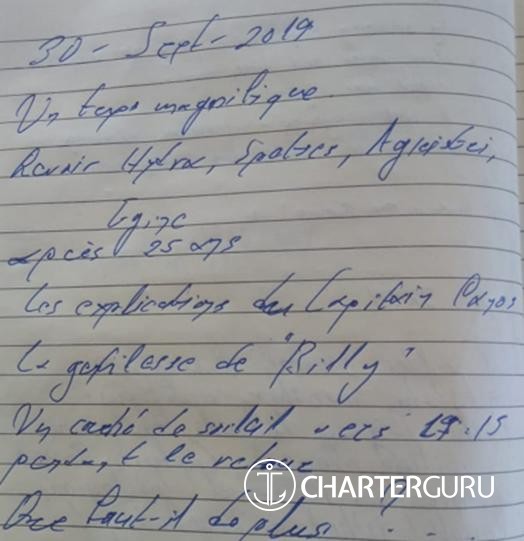 30 - Sept - 2019
Un temps magnifique.
Revoir Hydra, Spetses, Agkistri,
Egine
après 25 ans
Les explications du Capitain Panos
La gentilesse de "Billy"
Un couché de soleil vers 19:15
pendant le retour
Que faut-il de plus !? ...
CHARTERGURU